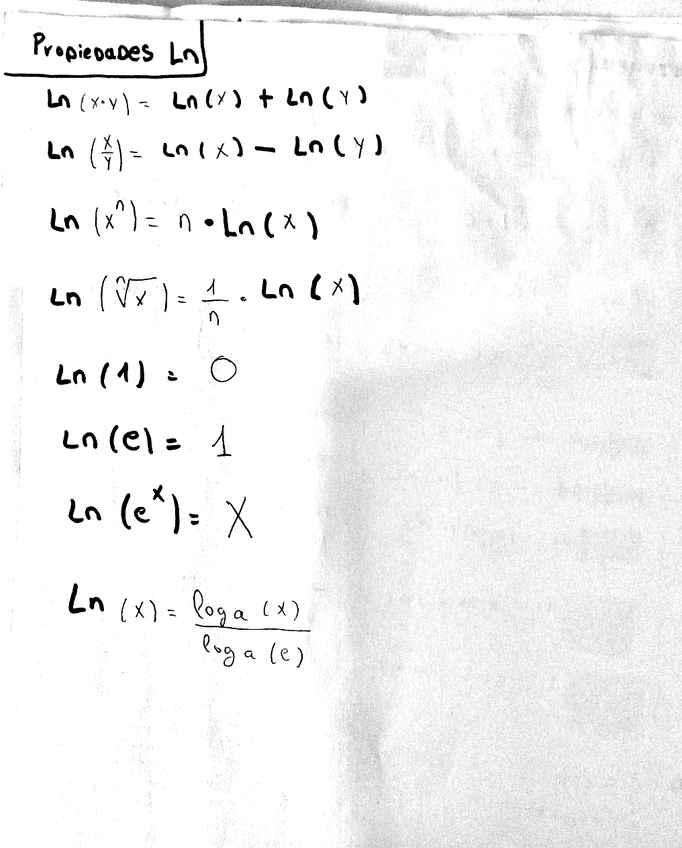 Propiedades Ln
Ln (x·y) = Ln(x) + Ln(y)
Ln (x/y) = Ln(x) - Ln(y)
Ln (xⁿ) = n · Ln(x)
Ln (ⁿ√x) = 1/n · Ln(x)
Ln (1) = 0
Ln (e) = 1
Ln (eˣ) = x
Ln (x) = log a (x) / log a (e)